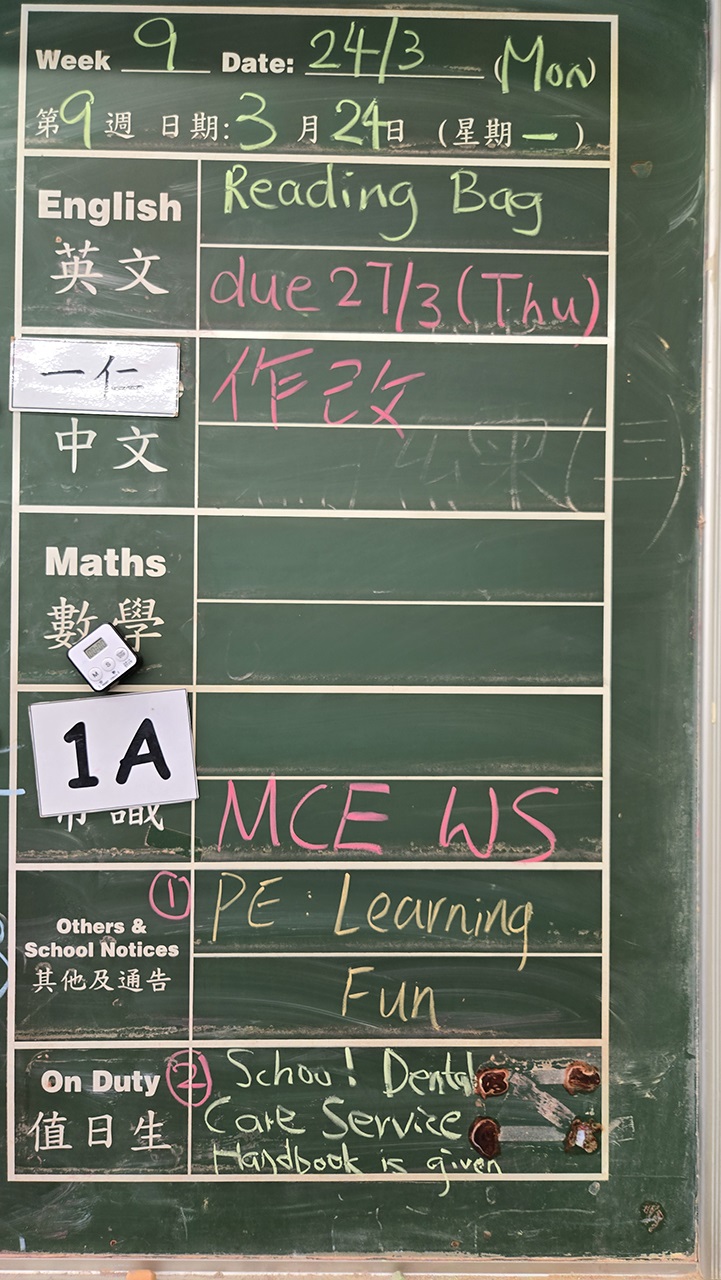 Week 9 Date: 24/3 (Mon)
第9週 日期:3月24日 (星期一)
English
英文
Reading Bag
due 27/3 (Thu)
一仁
中文
作改
Maths
數學
1A
常識
MCE WS
Others &
School Notices
其他及通告
① PE : Learning
Fun
On Duty
值日生
② School Dental
Care Service
Handbook is given